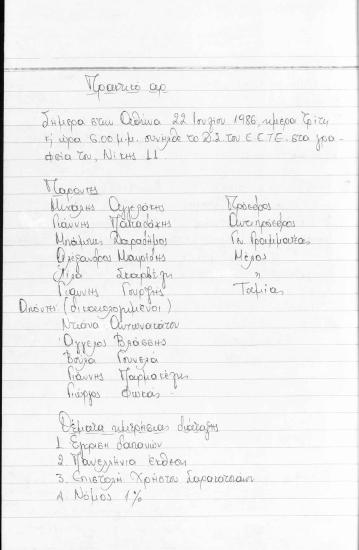 Πρακτικό αρ
Σήμερα στην Αθήνα 22 Ιουλίου 1986, ημέρα Τρίτη
κι ώρα 6.00 μ.μ. συνήλθε το Δ.Σ. του Ε.Ε.Τ.Ε. στα γρα-
φεία του, Νίκης 11
Παρόντες
Μιχάλης Αγγελάκης Πρόεδρος
Γιάννης Παπαδάκης Αντιπρόεδρος
Μπάμπης Γεν. Γραμματέας
Αλέξανδρος Μαυρίδης Μέλος
Σκαρβέλη "
Γιάννης Γουρζής Ταμίας
Απόντες (δικαιολογημένοι)
Ντιάνα Αντωνακάτου
Άγγελος Βλάσσης
Βούλα Γουνελά
Γιάννης Παρμακέλης
Γιώργος
Θέματα ημερήσιας διάταξης
1. Έγκριση δαπανών
2. Πανελλήνια έκθεση
3. Επιστολή Χρήστου
4. Νόμος 1%